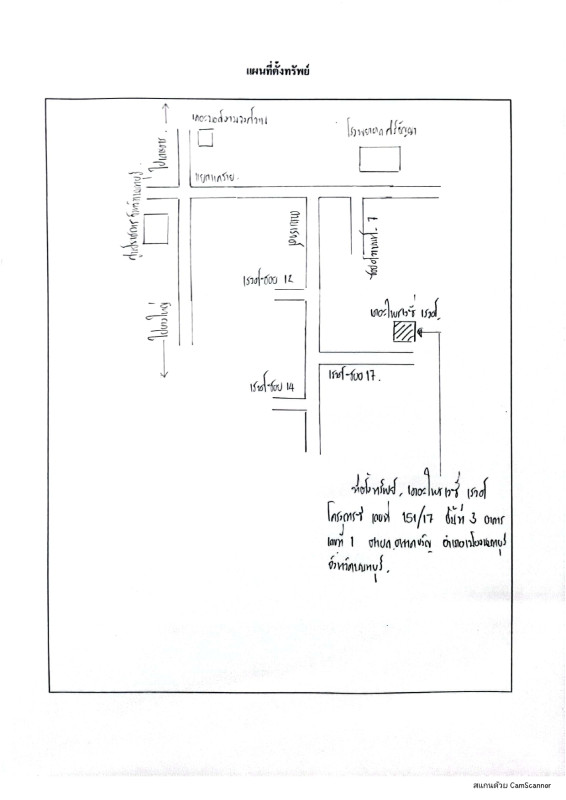 แผนที่ตั้งทรัพย์
เดอะมอลล์งามวงศ์วาน
โรงพยาบาลศรีธัญญา
ไป
แยกแคราย
ศูนย์ราชการ จังหวัดนนทบุรี
ถนนเรวดี
7
เรวดี-ซอย 12
เดอะไพรเวซี่ เรวดี
ไปบางใหญ่
เรวดี-ซอย 17.
เรวดี-ซอย 14
ที่ตั้งทรัพย์. เดอะไพรเวซี่ เรวดี
โครงการ ซี เลขที่ 151/17 ชั้นที่ 3 อาคาร
เลขที่ 1 ตำบล ตลาดขวัญ อำเภอเมืองนนทบุรี
จังหวัดนนทบุรี.
สแกนด้วย CamScanner